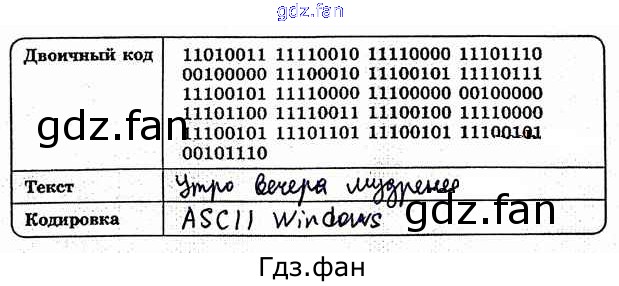 gdz.fan
Двоичный код
11010011 11110010 11110000 11101110
00100000 11100010 11100101 11110111
11100101 11110000 11100000 00100000
11101100 11110011 11100100 11110000
11100101 11101101 11100101 11100101
00101110
gdz.fan
gdz.fan
Текст
Утро вечера мудренее
Кодировка
ASCII Windows
gdz.fan
Гдз.фан